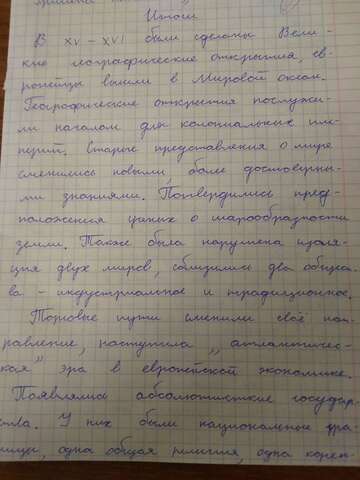 Итоги
В XV – XVI были сделаны Вели-
кие географические открытия, ев-
ропейцы вышли в Мировой океан.
Географические открытия послужи-
ли началом для колониальных им-
перий. Старые представления о мире
сменились новыми, более достоверны-
ми знаниями. Потвердились пред-
положения учёных о шарообразности
земли. Также была нарушена изоля-
ция двух миров, сблизились два общес-
ва – индустриальное и традиционное.
Торговые пути сменили своё нап-
равление, наступила „атлантичес-
кая" эра в европейской экономике.
Появлялись абсолютисткие государ-
ства. У них были национальные гра-
ницы, одна общая религия, одна корен-